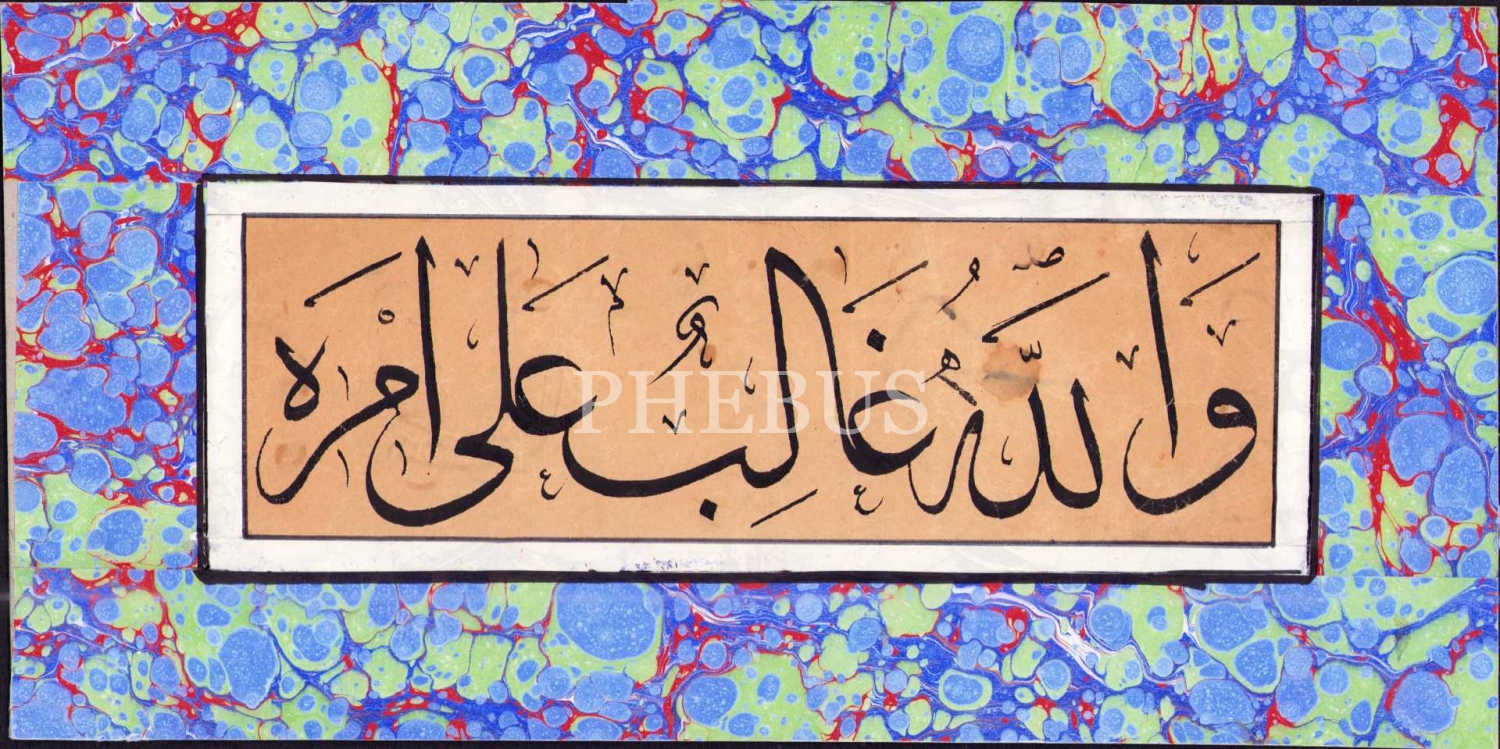 وَاللّٰهُ غَالِبٌ عَلَى اَمْرِه
PHEBUS